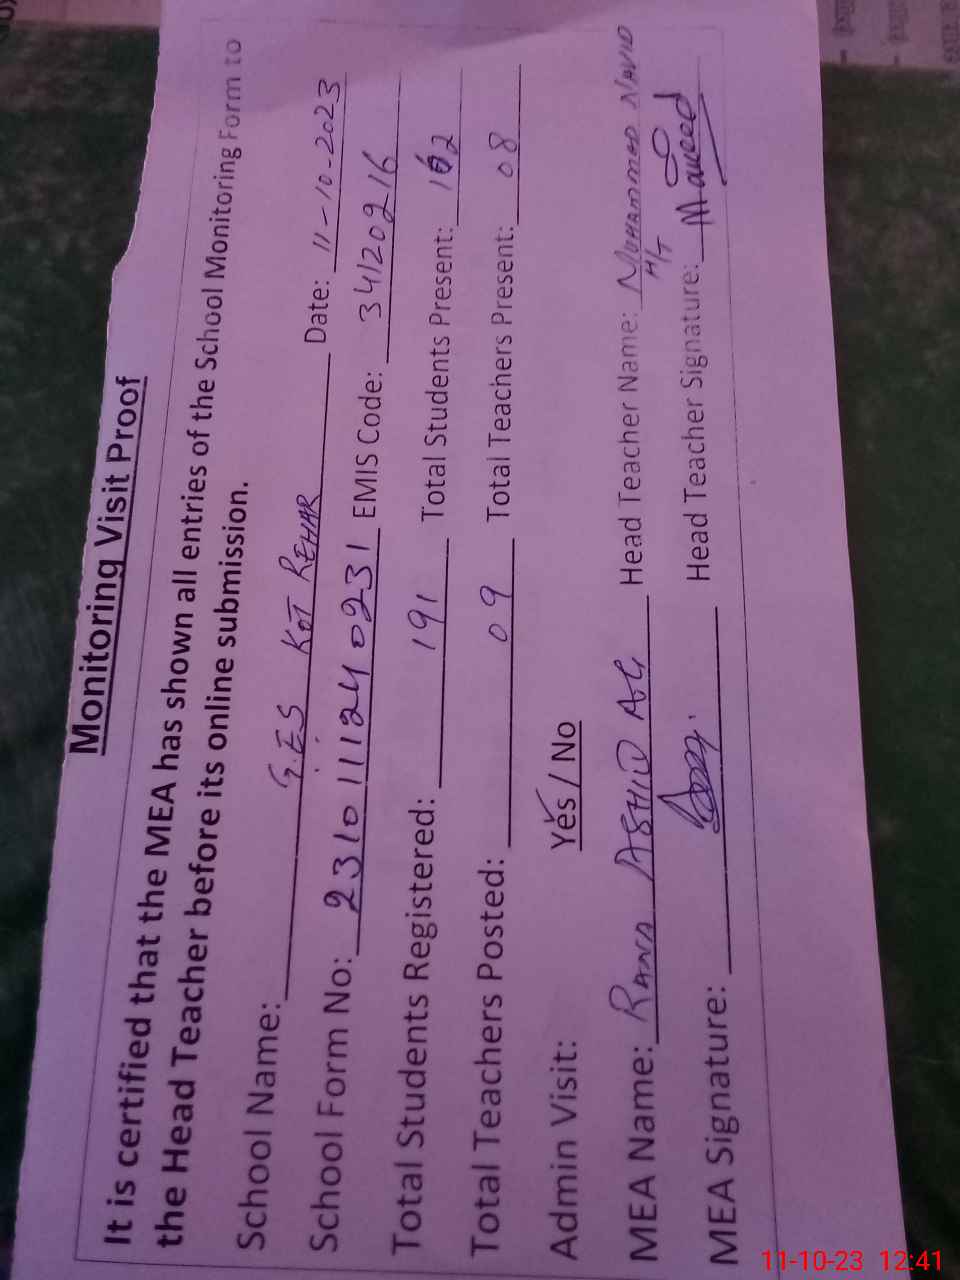 Monitoring Visit Proof
It is certified that the MEA has shown all entries of the School Monitoring Form to
the Head Teacher before its online submission.
School Name: G.E.S KOT REHAR Date: 11-10-2023
School Form No: 2310111240231 EMIS Code: 34120916
Total Students Registered: 191 Total Students Present: 162
Total Teachers Posted: 09 Total Teachers Present: 08
Admin Visit: Yes / No
MEA Name: RANA ASHID ALI Head Teacher Name: MUHAMMAD NAVID
H/T
MEA Signature: Head Teacher Signature: Naveed
11-10-23 12:41